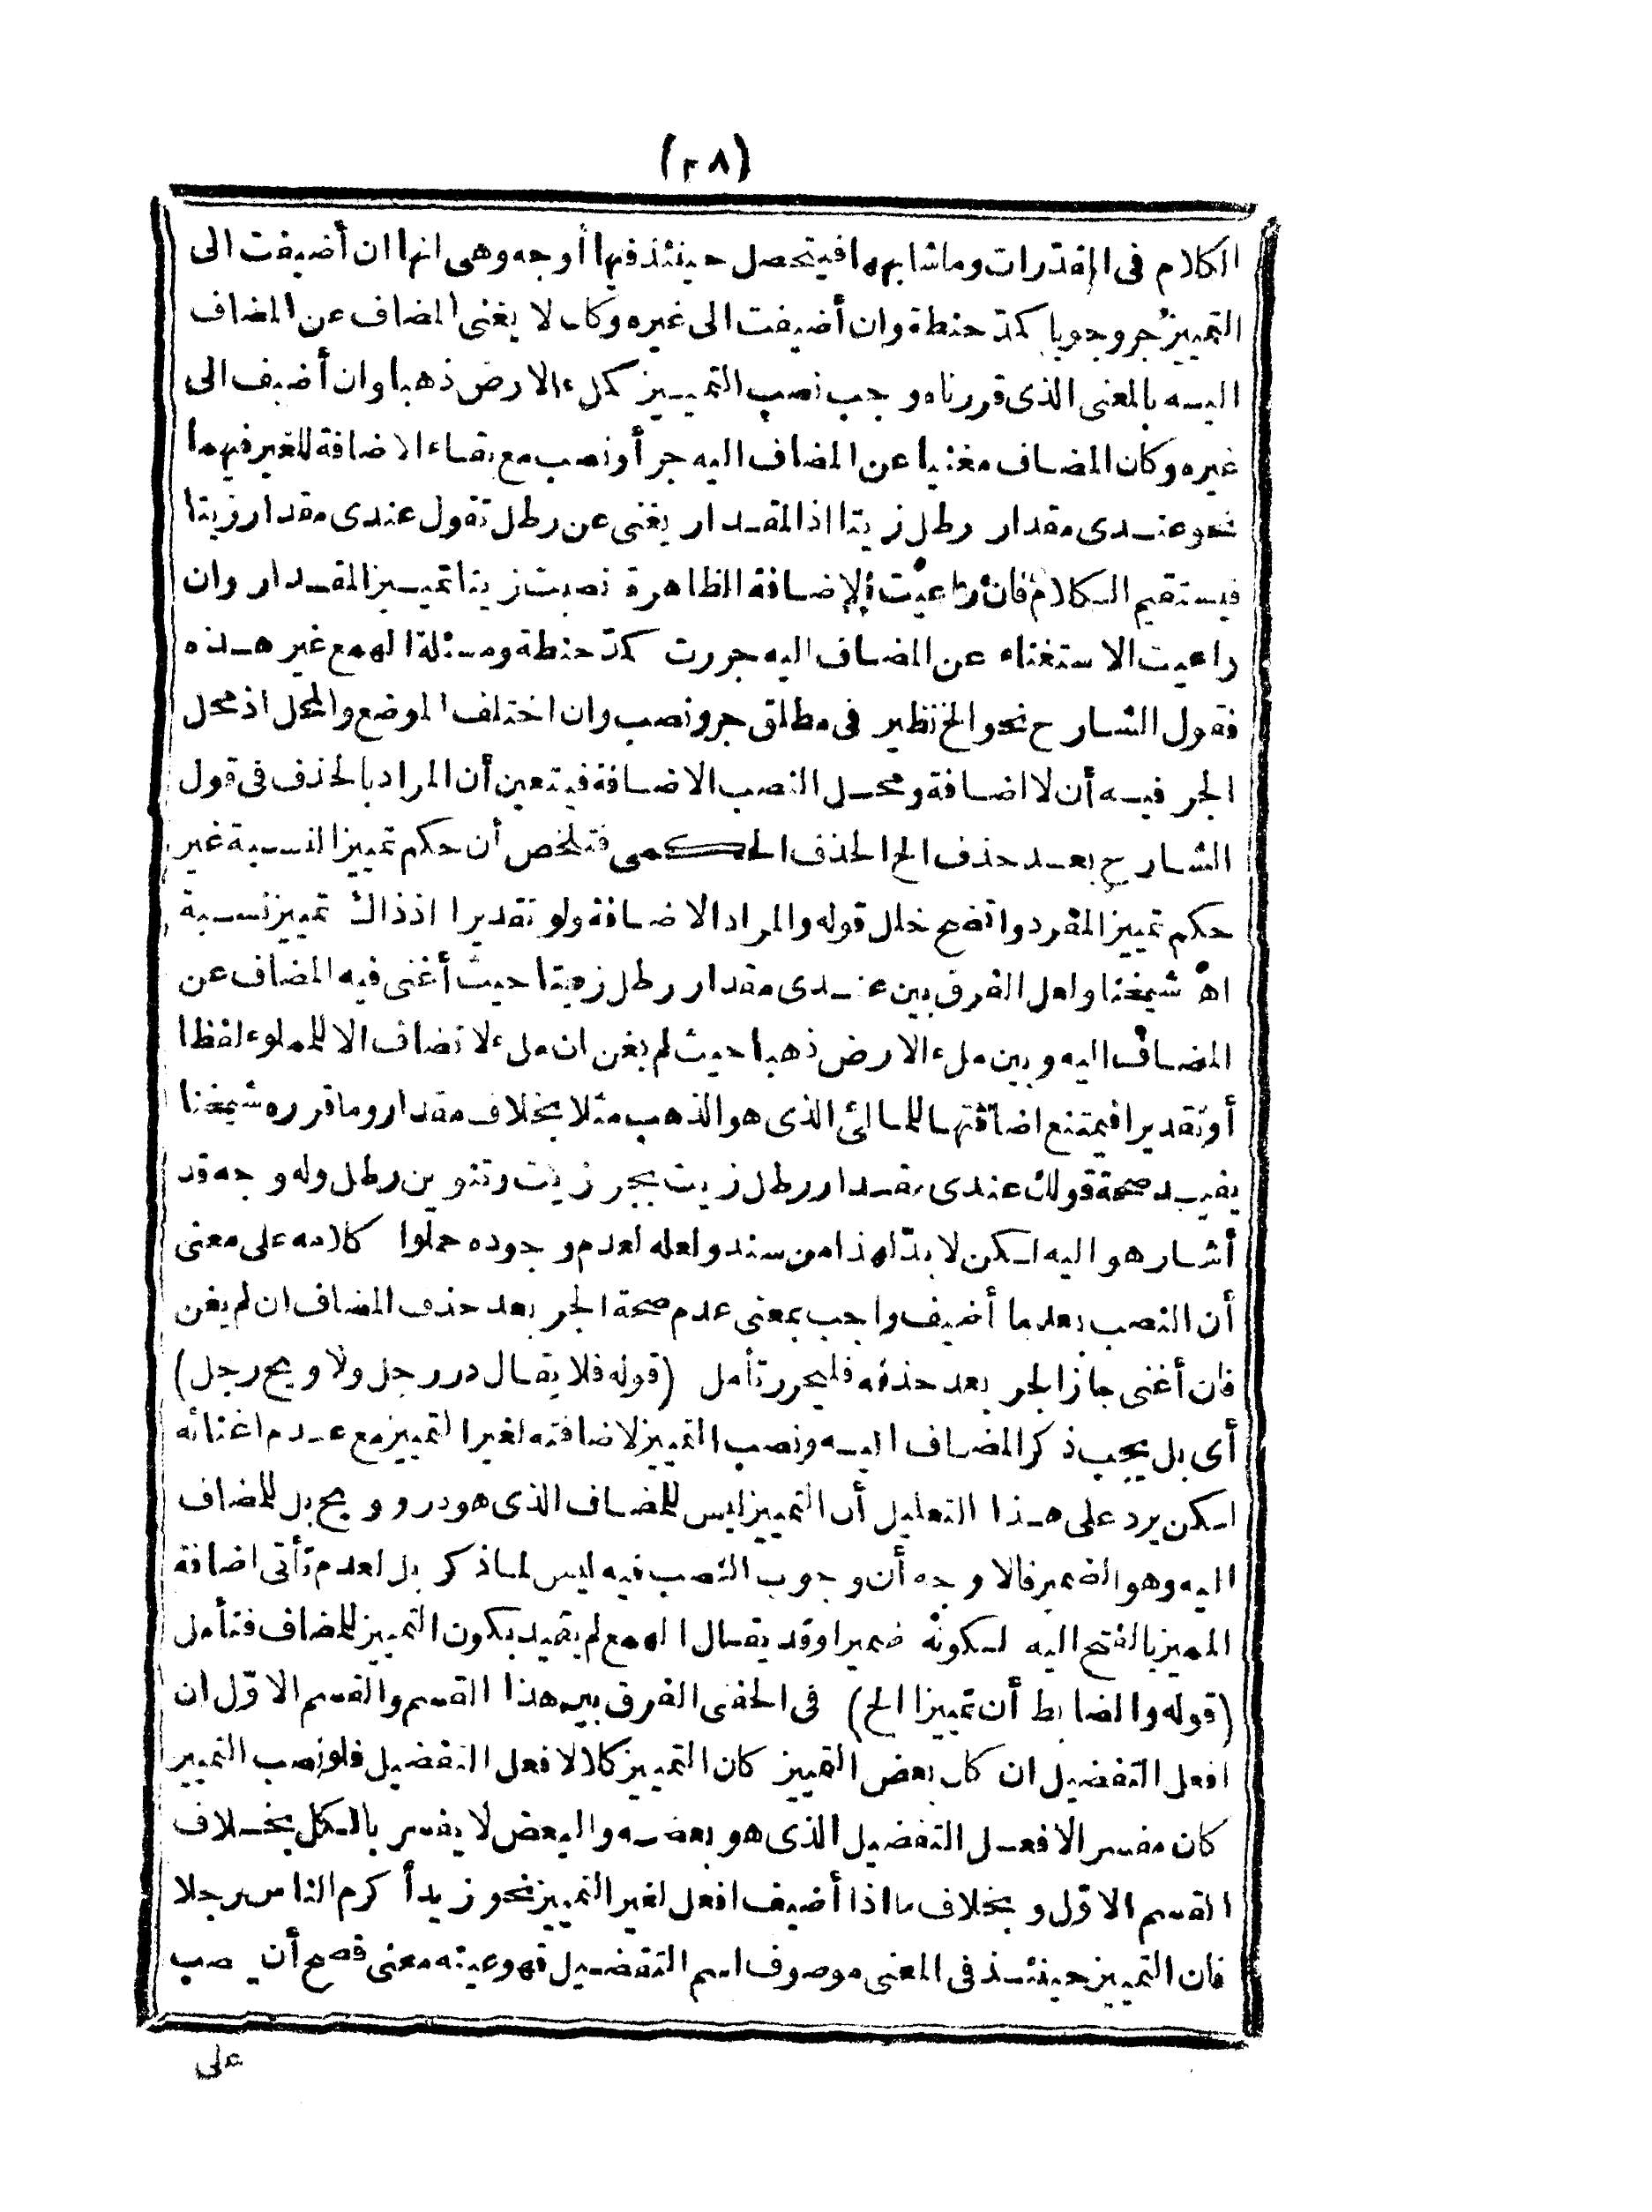 (٢٨)
الكلام فى المقدّرات وما شابهها فيتحصل حينئذ فيها أوجه وهى انها ان أضيفت الى
التمييز جر وجوبا كمدّ حنطة وان أضيفت الى غيره وكان لا يغنى المضاف عن المضاف
اليه بالمعنى الذى قررناه وجب نصب التمييز كملء الارض ذهبا وان أضيف الى
غيره وكان المضاف مغنيا عن المضاف اليه جر أو نصب مع بقاء الاضافة للغير فيهما
نحو عندى مقدار رطل زيتا اذ المقدار يغنى عن رطل تقول عندى مقدار زيتا
فيستقيم الكلام فان راعيت الاضافة الظاهرة نصبت زيتا تمييز المقدار وان
راعيت الاستغناء عن المضاف اليه جررت كمدّ حنطة ومسئلة الهمع غير هذه
فقول الشارح نحو الخ تنظير فى مطلق جر ونصب وان اختلف الموضع والمحل اذ محل
الجر فيه أن لا اضافة ومحل النصب الاضافة فيتعين أن المراد بالحذف فى قول
الشارح بعد حذف الخ الحذف الحكمى فتلخص أن حكم تمييز النسبة غير
حكم تمييز المفرد واتضح خلل قوله والمراد الاضافة ولو تقديرا اذ ذاك تمييز نسبة
اه شيخنا ولعل الفرق بين عندى مقدار رطل زيتا حيث أغنى فيه المضاف عن
المضاف اليه وبين ملء الارض ذهبا حيث لم يغن ان ملء لا تضاف الا للمملوء لفظا
أو تقديرا فيمتنع اضافتها للمالئ الذى هو الذهب مثلا بخلاف مقدار وما قرره شيخنا
يفيد صحة قولك عندى مقدار رطل زيت بجر زيت وتنوين رطل وله وجه قد
أشار هو اليه لكن لا بدّ لهذا من سند ولعله لعدم وجوده حملوا كلامه على معنى
أن النصب بعد ما أضيف واجب بمعنى عدم صحة الجر بعد حذف المضاف ان لم يغن
فان أغنى جاز الجر بعد حذفه فليحرر تأمل (قوله فلا يقال در رجل ولا ويح رجل)
أى بل يجب ذكر المضاف اليه ونصب التمييز لاضافته لغير التمييز مع عدم اغنائه
لكن يرد على هذا التعليل أن التمييز ليس للمضاف الذى هو در وويح بل للمضاف
اليه وهو الضمير فالاوجه أن وجوب النصب فيه ليس لما ذكر بل لعدم تأتى اضافة
المميز بالفتح اليه لكونه ضميرا وقد يقال الهمع لم يقيد بكون التمييز للمضاف فتأمل
(قوله والضابط أن تمييز الخ) فى الحفنى الفرق بين هذا القسم والقسم الاوّل ان
افعل التفضيل ان كان بعض التمييز كان التمييز كلا لافعل التفضيل فلو نصب التمييز
كان مفسرا لافعل التفضيل الذى هو بعضه والبعض لا يفسر بالكل بخلاف
القسم الاوّل وبخلاف ما اذا أضيف افعل لغير التمييز نحو زيد أكرم الناس رجلا
فان التمييز حينئذ فى المعنى موصوف اسم التفضيل فهو عينه معنى فصح أن ينصب
على